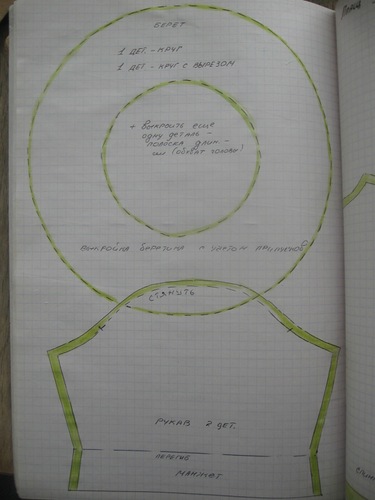 БЕРЕТ
1 ДЕТ. - КРУГ
1 ДЕТ - КРУГ С ВЫРЕЗОМ
+ Выкроить еще
одну деталь -
полоска длин.
(обхват головы)
ВЫКРОЙКА
СТЯНУТЬ
РУКАВ 2 ДЕТ.
ПЕРЕГИБ
МАНЖЕТ